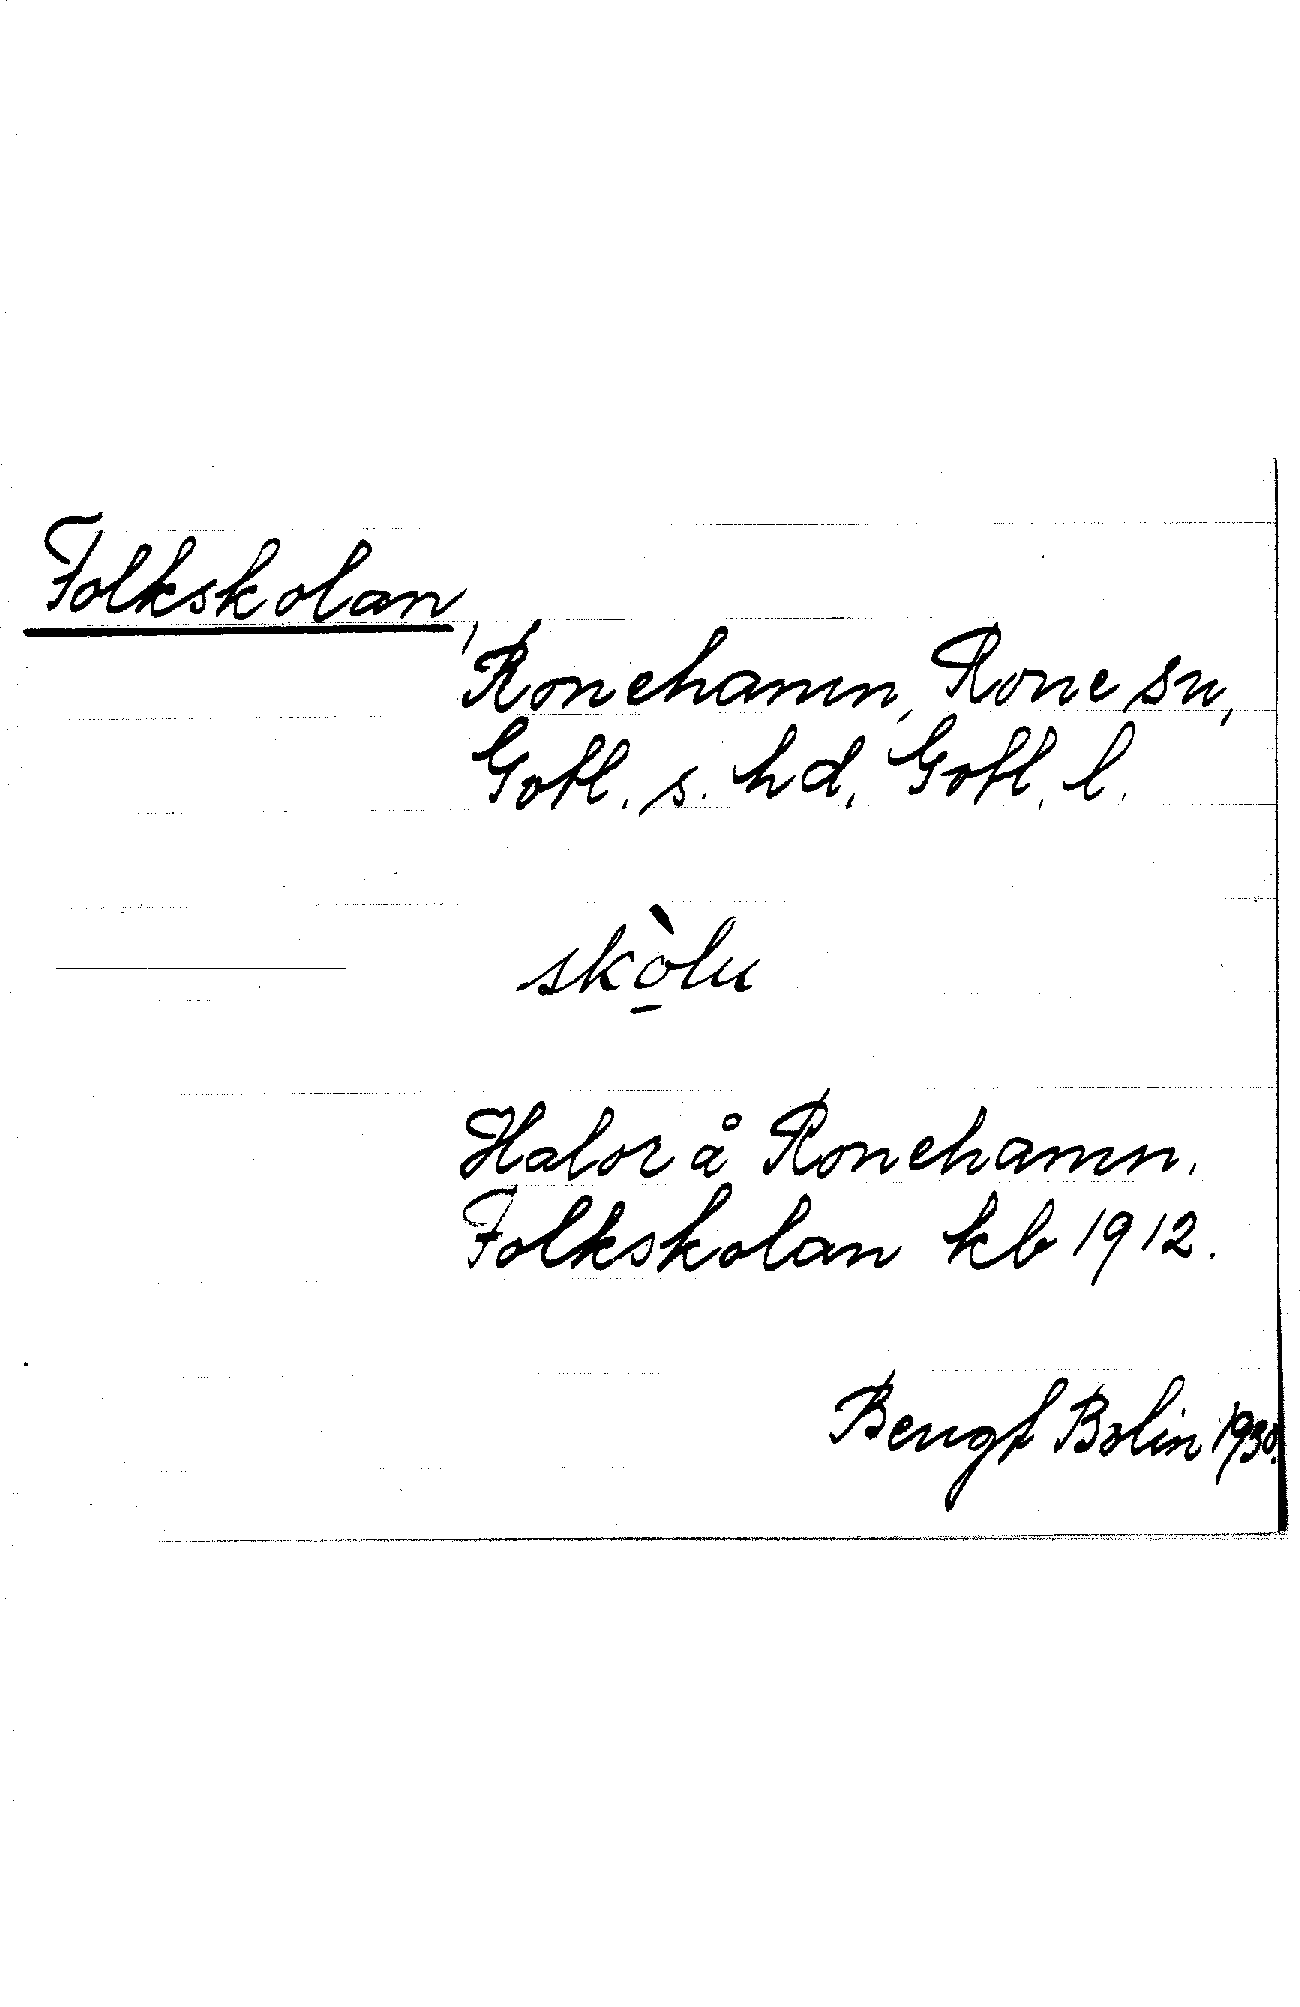 Folkskolan,
Ronehamn, Rone sn,
Gotl. s. hd, Gotl. l.
skò̱lu
Halor å Ronehamn.
Folkskolan kb 1912.
Bengt Bolin 1930.